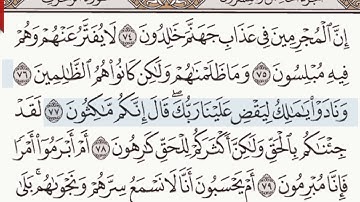 إِنَّ ٱلْمُجْرِمِينَ فِى عَذَابِ جَهَنَّمَ خَٰلِدُونَ ٧٤ لَا يُفَتَّرُ عَنْهُمْ وَهُمْ
فِيهِ مُبْلِسُونَ ٧٥ وَمَا ظَلَمْنَٰهُمْ وَلَٰكِن كَانُوا۟ هُمُ ٱلظَّٰلِمِينَ ٧٦
وَنَادَوْا۟ يَٰمَٰلِكُ لِيَقْضِ عَلَيْنَا رَبُّكَ ۖ قَالَ إِنَّكُم مَّٰكِثُونَ ٧٧ لَقَدْ
جِئْنَٰكُم بِٱلْحَقِّ وَلَٰكِنَّ أَكْثَرَكُمْ لِلْحَقِّ كَٰرِهُونَ ٧٨ أَمْ أَبْرَمُوٓا۟ أَمْرًا
فَإِنَّا مُبْرِمُونَ ٧٩ أَمْ يَحْسَبُونَ أَنَّا لَا نَسْمَعُ سِرَّهُمْ وَنَجْوَىٰهُم ۚ بَلَىٰ